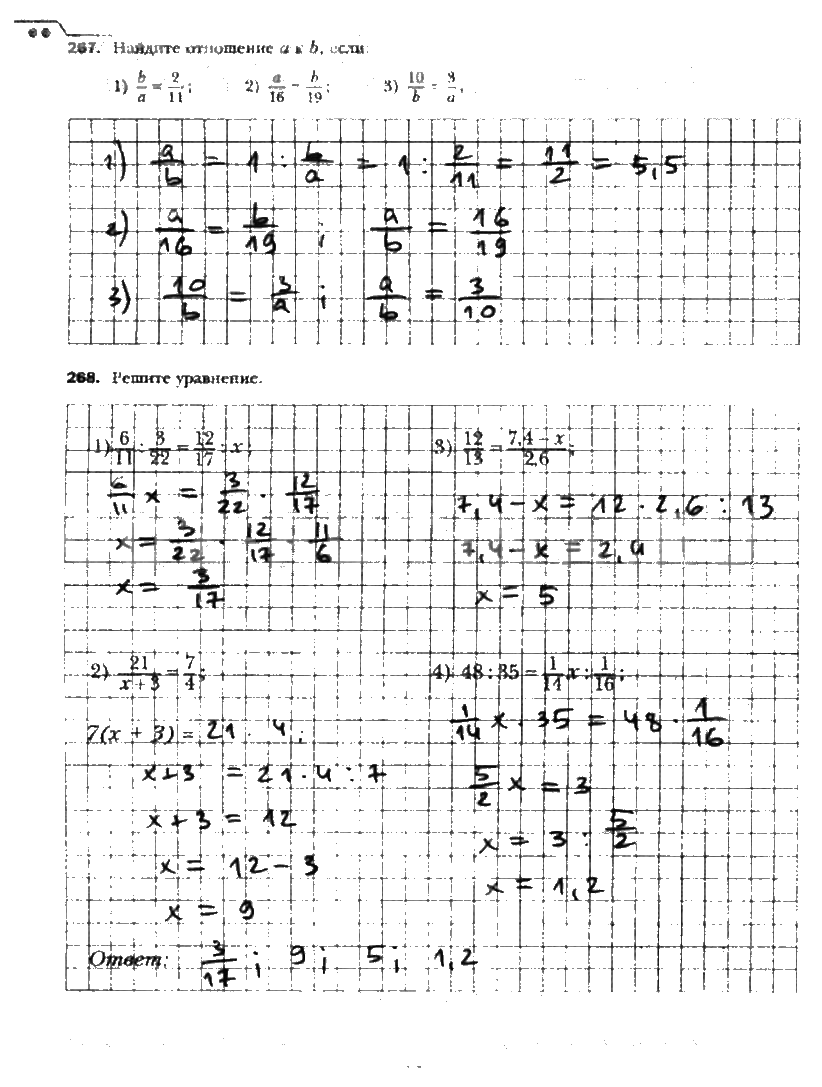 267. Найдите отношение a к b, если:
1) b/a = 2/11; 2) a/16 = b/19; 3) 10/b = 3/a.
1) a/b = 1 : b/a = 1 : 2/11 = 11/2 = 5,5
2) a/16 = b/19 ; a/b = 16/19
3) 10/b = 3/a ; a/b = 3/10
268. Решите уравнение.
1) 6/11 : 3/22 = 12/17 : x;
6/11 x = 3/22 · 12/17
x = 3/22 · 12/17 · 11/6
x = 3/17
3) 12/13 = 7,4 − x/2,6;
7,4 − x = 12 · 2,6 : 13
7,4 − x = 2,4
x = 5
2) 21/x + 3 = 7/4;
7(x + 3) = 21 · 4 ;
x+3 = 21 · 4 : 7
x + 3 = 12
x = 12 − 3
x = 9
4) 48 : 35 = 1/14 x : 1/16;
1/14 x · 35 = 48 · 1/16
5/2 x = 3
x = 3 : 5/2
x = 1,2
Ответ: 3/17 ; 9 ; 5 ; 1,2